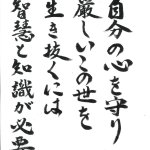 自分の心を守り
厳しいこの世を
生き抜くには
智慧と知識が必要